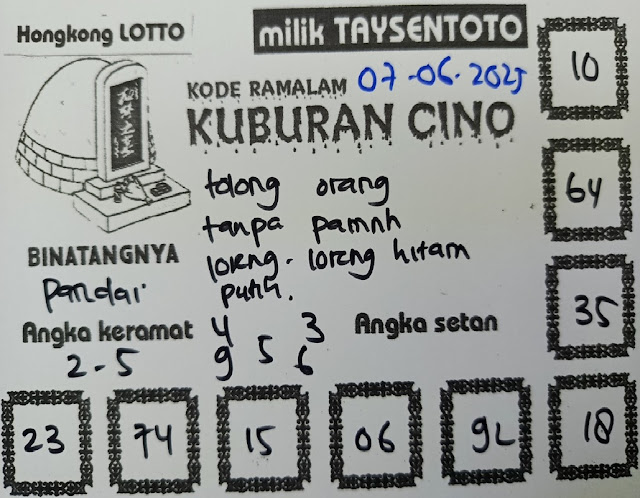 Hongkong LOTTO
milik TAYSENTOTO
KODE RAMALAM 07-06-2025
KUBURAN CINO
tolong orang
tanpa pamnh
loreng-loreng hitam
putih.
BINATANGNYA
Pandai
Angka keramat
2-5
4 3
9 5 6
Angka setan
10
64
35
23
74
15
06
92
18